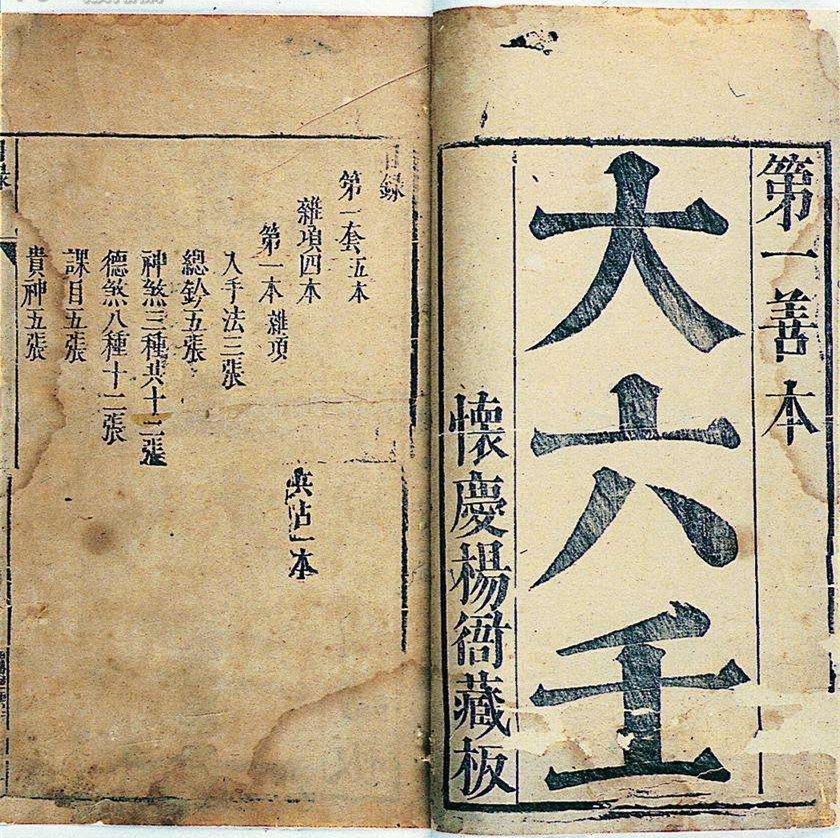 第一善本
大六壬
懷慶楊衙藏板
目録
第一套五本
雜項四本
兵占一本
第一本雜項
入手法三張
總鈐五張
神煞三種共十二張
德煞八種十二張
課目五張
貴神五張
目録